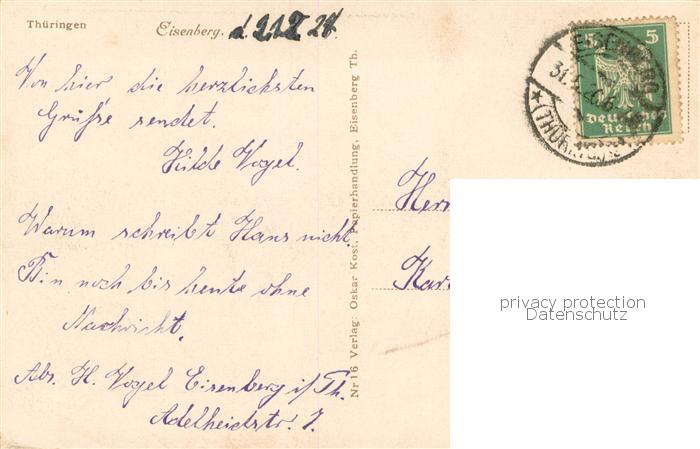 Thüringen
Eisenberg.
Von hier die herzlichsten
Grüße sendet.
Hilde Vogel.
Warum schreibt Hans nicht.
Bin noch bis heute ohne
Nachricht.
Abs. H. Vogel Eisenberg i/Th.
Adelheidstr. 7.
Nr 16 Verlag: Oskar Kost, Papierhandlung, Eisenberg Th.
5 5
Deutsches
Reich
Herr
privacy protection
Datenschutz